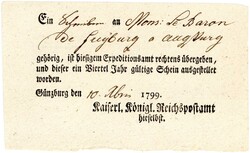 Ein Schreiben an Mons: Le Baron
De Freyburg a Augsburg
gehörig, ist hiesigem Expeditionsamt rechtens übergeben,
und dieser ein Viertel Jahr gültige Schein ausgestellet
worden.
Günzburg den 10. Xbris 1799.
Kaiserl. Königl. Reichspostamt
hieselbst.